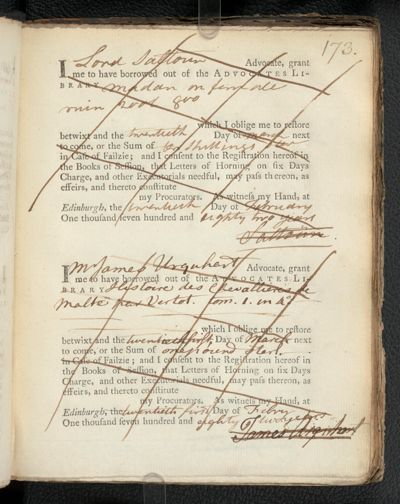 173.
I Lord Saltoun Advocate, grant
me to have borrowed out of the ADVOCATES LI-
BRARY Madan on female
ruin 8vo
which I oblige me to reſtore
betwixt and the twentieth Day of March next
to come, or the Sum of Shillings Ster
in Caſe of Failzie; and I conſent to the Regiſtration hereof in
the Books of Seſſion, that Letters of Horning on ſix Days
Charge, and other Executorials needful, may paſs thereon, as
effeirs, and thereto conſtitute
my Procurators. As witneſs my Hand, at
Edinburgh, the twentieth Day of February
One thouſand ſeven hundred and eighty two years
Saltoun.
I Mr James Urquhart Advocate, grant
me to have borrowed out of the ADVOCATES LI-
BRARY Histoire des Chevaliers de
Malte par Vertot. Tom. 1. in 4o
which I oblige me to reſtore
betwixt and the twenty first Day of March next
to come, or the Sum of one pound Sterl.
in Caſe of Failzie; and I conſent to the Regiſtration hereof in
the Books of Seſſion, that Letters of Horning on ſix Days
Charge, and other Executorials needful, may paſs thereon, as
effeirs, and thereto conſtitute
my Procurators. As witneſs my Hand, at
Edinburgh, the twentieth first Day of Febry
One thouſand ſeven hundred and eighty two years.
James Urquhart